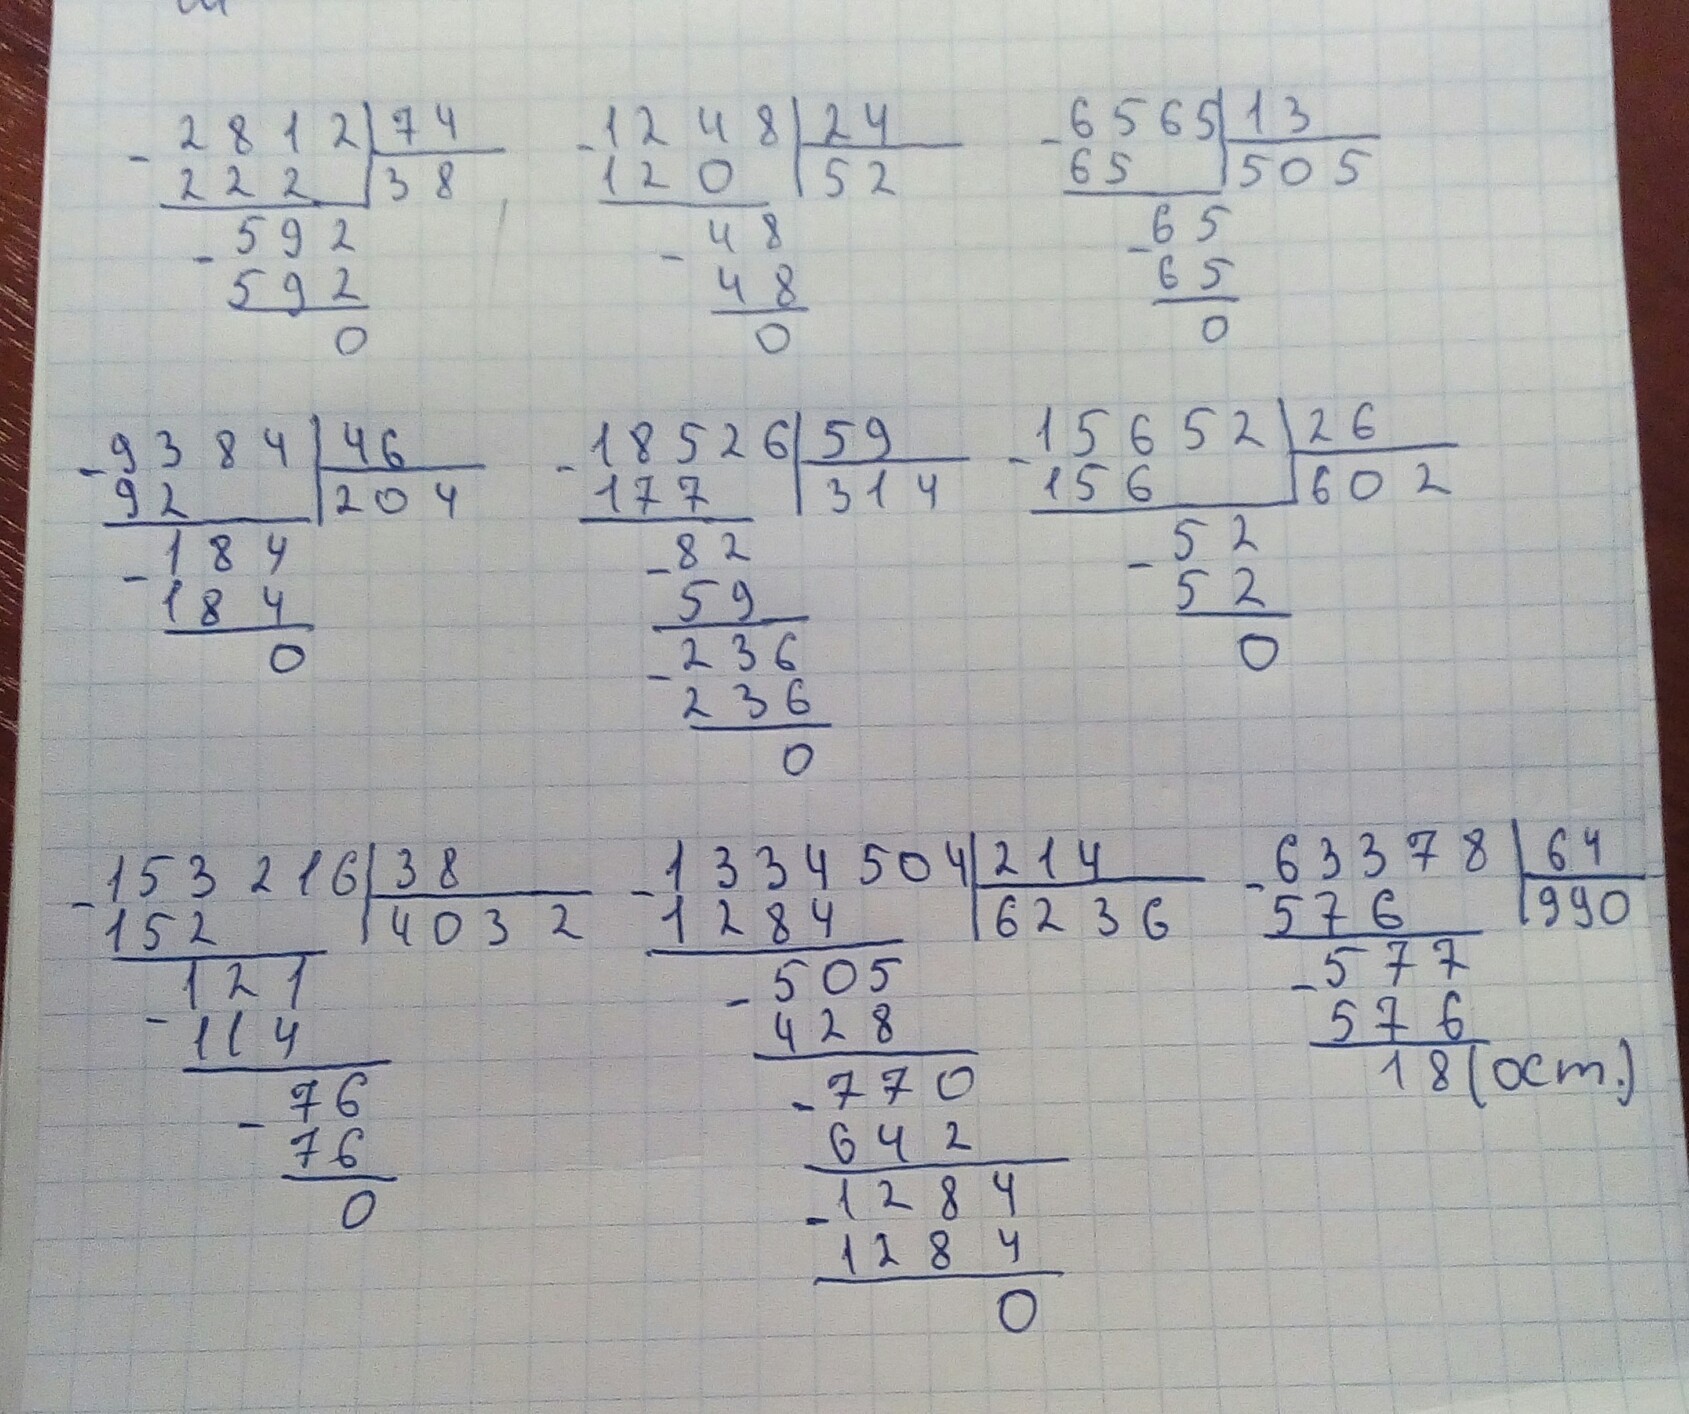 - 2812 | 74
222 | 38
- 592
592
0
- 1248 | 24
120 | 52
- 48
48
0
- 6565 | 13
65 | 505
- 65
65
0
- 9384 | 46
92 | 204
- 184
184
0
- 18526 | 59
177 | 314
- 82
59
- 236
236
0
- 15652 | 26
156 | 602
- 52
52
0
- 153216 | 38
152 | 4032
- 121
114
- 76
76
0
- 1334504 | 214
1284 | 6236
- 505
428
- 770
642
- 1284
1284
0
- 63378 | 64
576 | 990
- 577
576
18 (ост.)